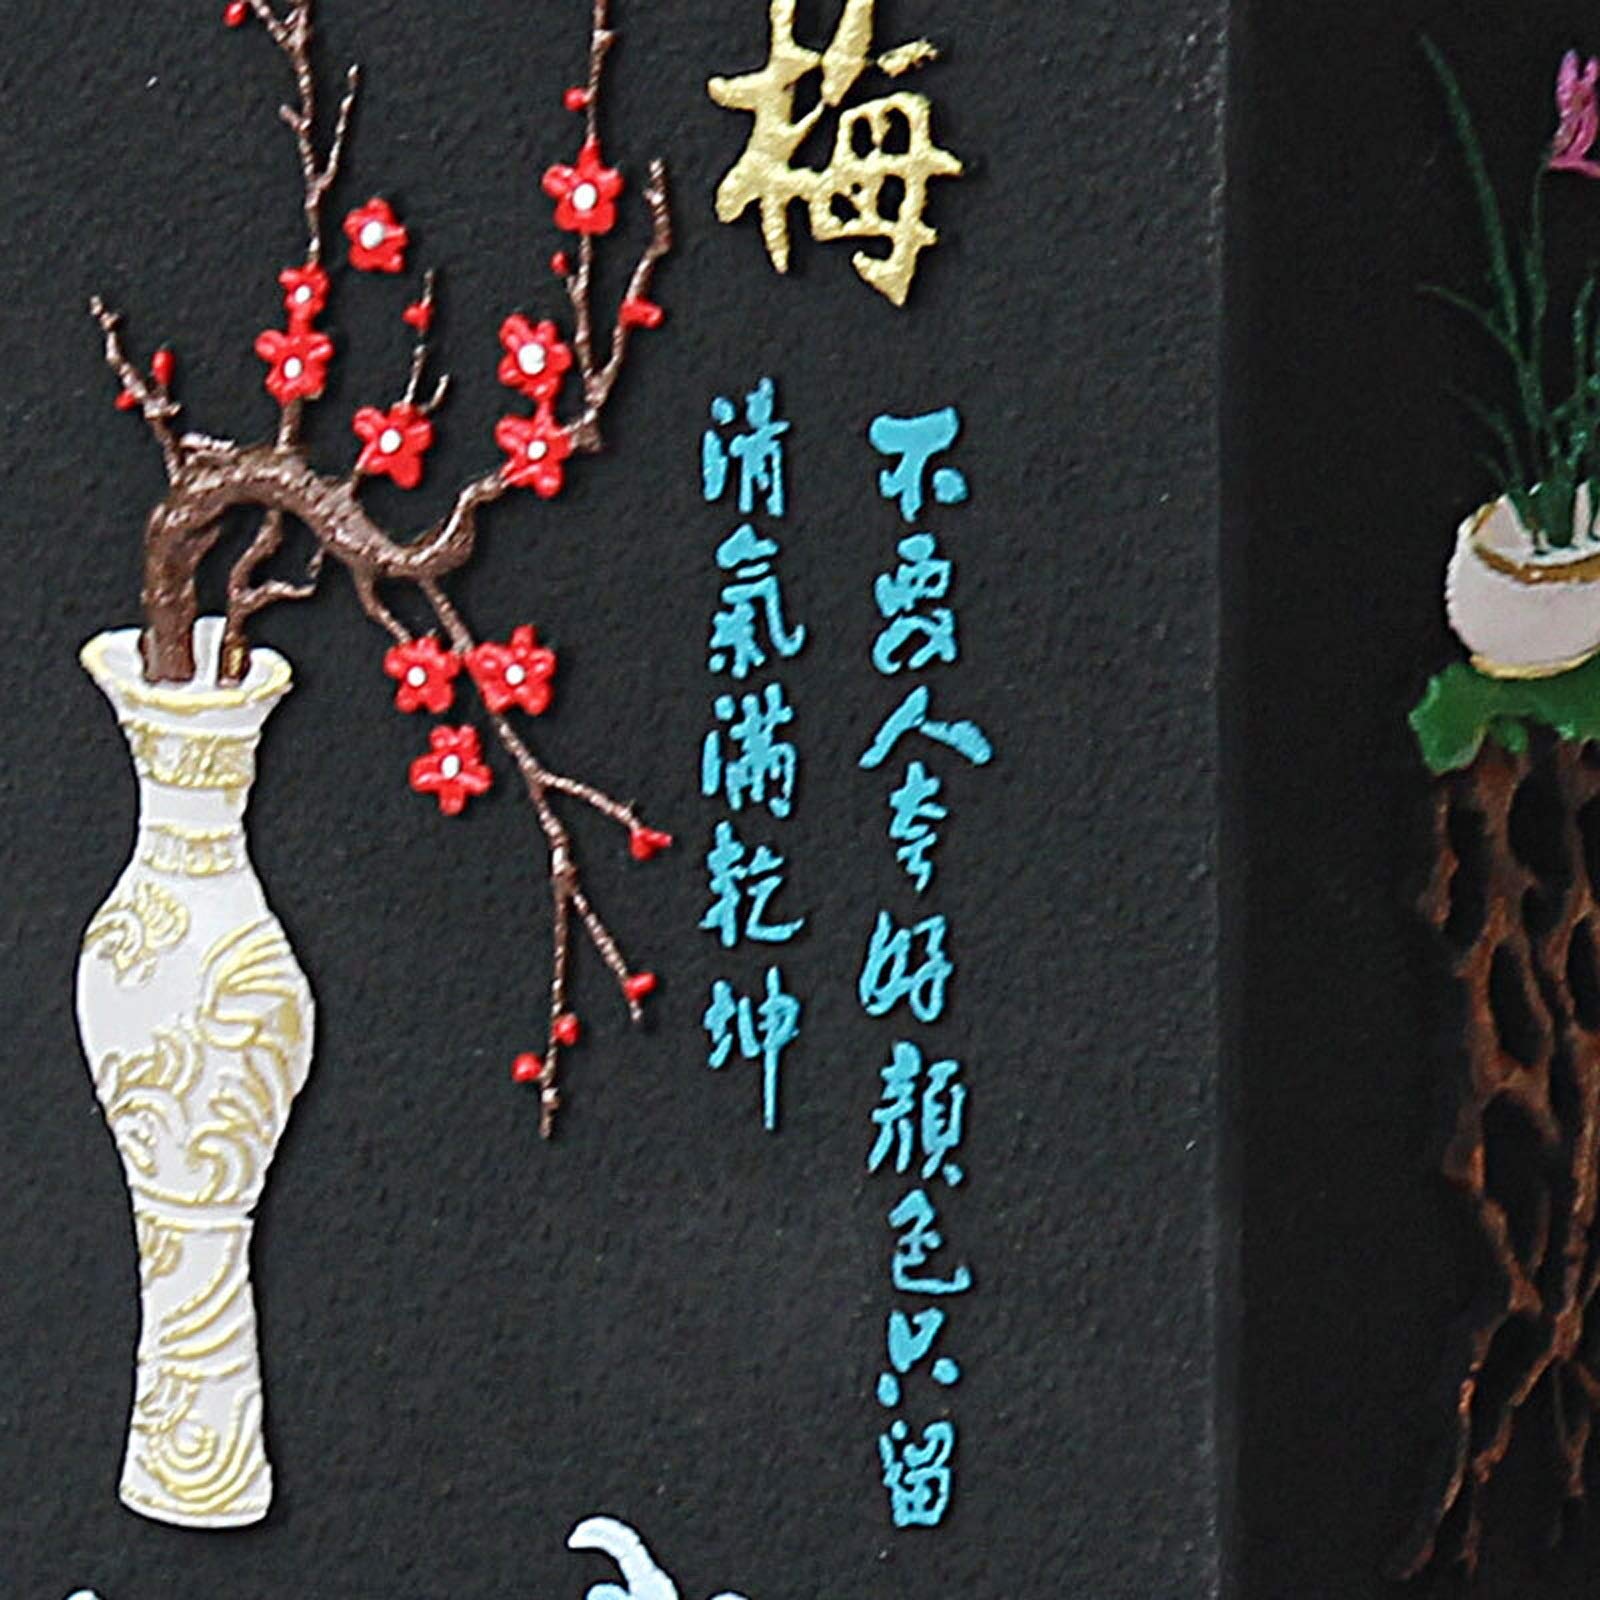 梅
不要人夸好顏色只留
清氣滿乾坤